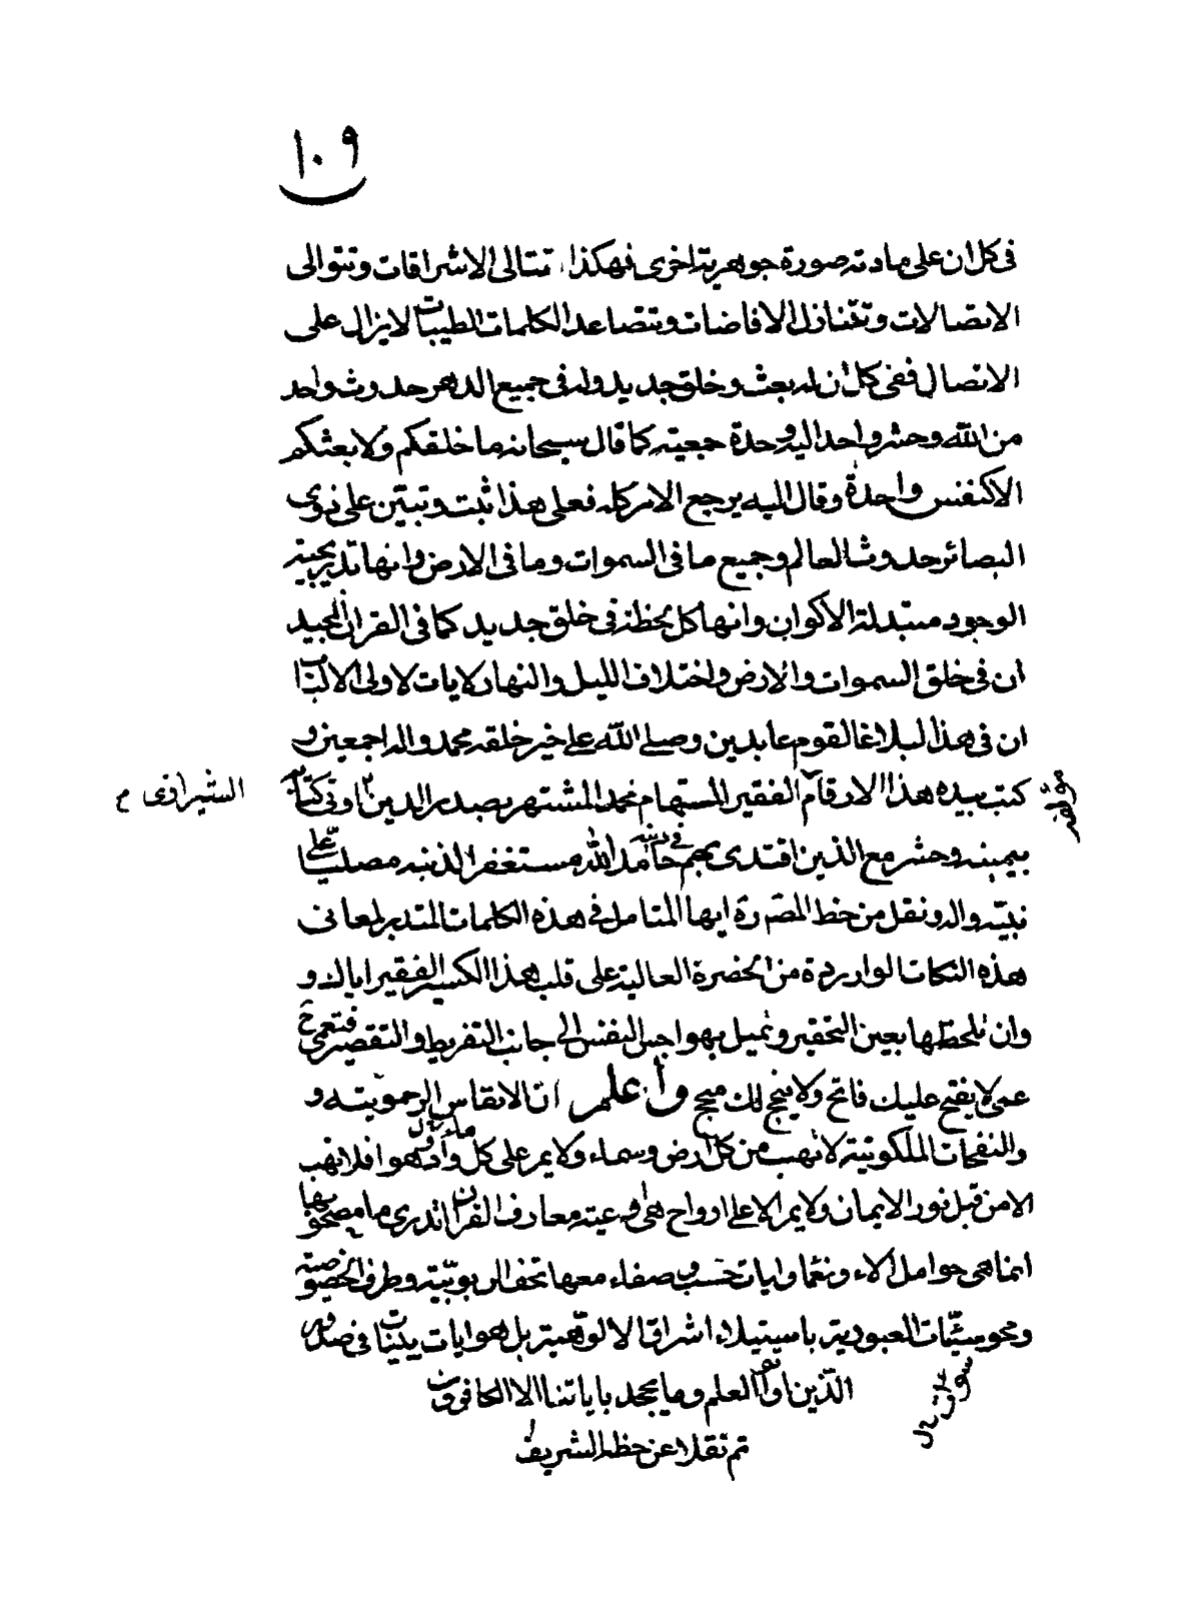 ١٠٩
فى كل ان على مادته صورة جوهرية اخرى فهكذا تتتالى الاشراقات وتتوالى
الاتصالات وتتنازل الافاضات وتتصاعد الكلمات الطيبات لا يزال على
الاتصال ففى كل ان له بعث وخلق جديد وله فى جميع الدهر حدوث واحد
من الله وحشر واحد اليه وحدة جمعية كما قال سبحانه ما خلقكم ولا بعثكم
الا كنفس واحدة وقال اليه يرجع الامر كله فعلى هذا ثبت وتبين على ذوى
البصائر حدوث العالم وجميع ما فى السموات وما فى الارض وانها تدريجية
الوجود متبدلة الاكوان وانها كل لحظة فى خلق جديد كما فى القران المجيد
ان فى خلق السموات والارض واختلاف الليل والنهار لايات لاولى الالباب
ان فى هذا لبلاغا لقوم عابدين وصلى الله على خير خلقه محمد واله اجمعين و
كتب بيده هذا الارقام الفقير المستهام محمد المشتهر بصدر الدين اوتى كتابه
الشيرازى م
مؤلفه
بيمينه وحشر مع الذين اقتدى بهم فى دينه حامدا لله مستغفرا لذنبه مصليا على
نبيه واله ونقل من خط المص ره ايها المتامل فى هذه الكلمات المتدبر لمعانى
هذه النكات الواردة من الحضرة العالية على قلب هذا الكسير الفقير اياك و
وان تلحظها بعين التحقير وتميل بهواجس النفس الى جانب التفريط والتقصير فتعمى ح
عمى لا يفتح عليك فاتح ولا ينجح لك منجح واعلم ان الانفاس الرحموتية و
والنفحات الملكوتية لا تهب من كل ارض وسماء ولا يمر على كل واد وهواء فلا تهب
الا من قبل نور الايمان ولا يمر الا على ارواح هى اوعية معارف القران اتدرى ما مصحوبها
انما هى حوامل الاء ونغما وايات حسب صفاء معها تحف الربوبية وطرف الخصوصية
ومحو سيئات العبودية باستيلاء اشراق الالوهية بل هو ايات بينات فى صدور
الذين اوتوا العلم وما يجحد باياتنا الا الكافرون
تم نقلا عن خطه الشريف